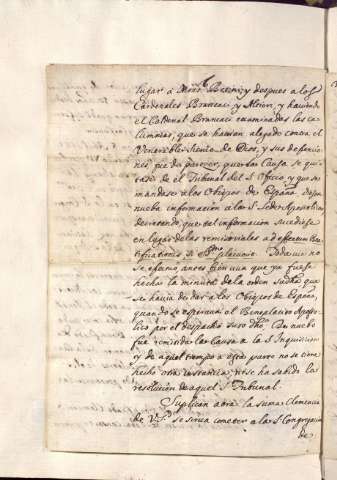 lugar a Monr. Bottini, y despues a los
Cardenales Brancaci, y Altieri, y haviendo
el Cardenal Brancaci examinadas las ca-
lumnias, que se havian alegado contra el
Venerable Siervo de Dios, y sus defensio-
nes, fue de parecer, que la Causa se qui-
tasse de el Tribunal del S. Officio, y que se
mandasse a los Obispos de España
nueba informacion a la S. Sede Apostolica
decretando, que tal informacion sucediesse
en lugar de las remissoriales ad effectum
Todavia no
se efectuò, aun que ya fuesse
hecha la minuta de la orden sudha que
se havia de dar a los Obispos de España,
quando se esperava el Beneplacito Aposto-
lico por el despacho suso dho. De nuebo
fue remitida la Causa a la S. Inquisicion
y de aquel tiempo a esta parte no se tiene
hecho otra instancia, ni se ha sabido la
resolucion de aquel S. Tribunal.
Suplican aora la suma Clemencia
de V. Sd. se sirva cometer a la S. Congregacion
de